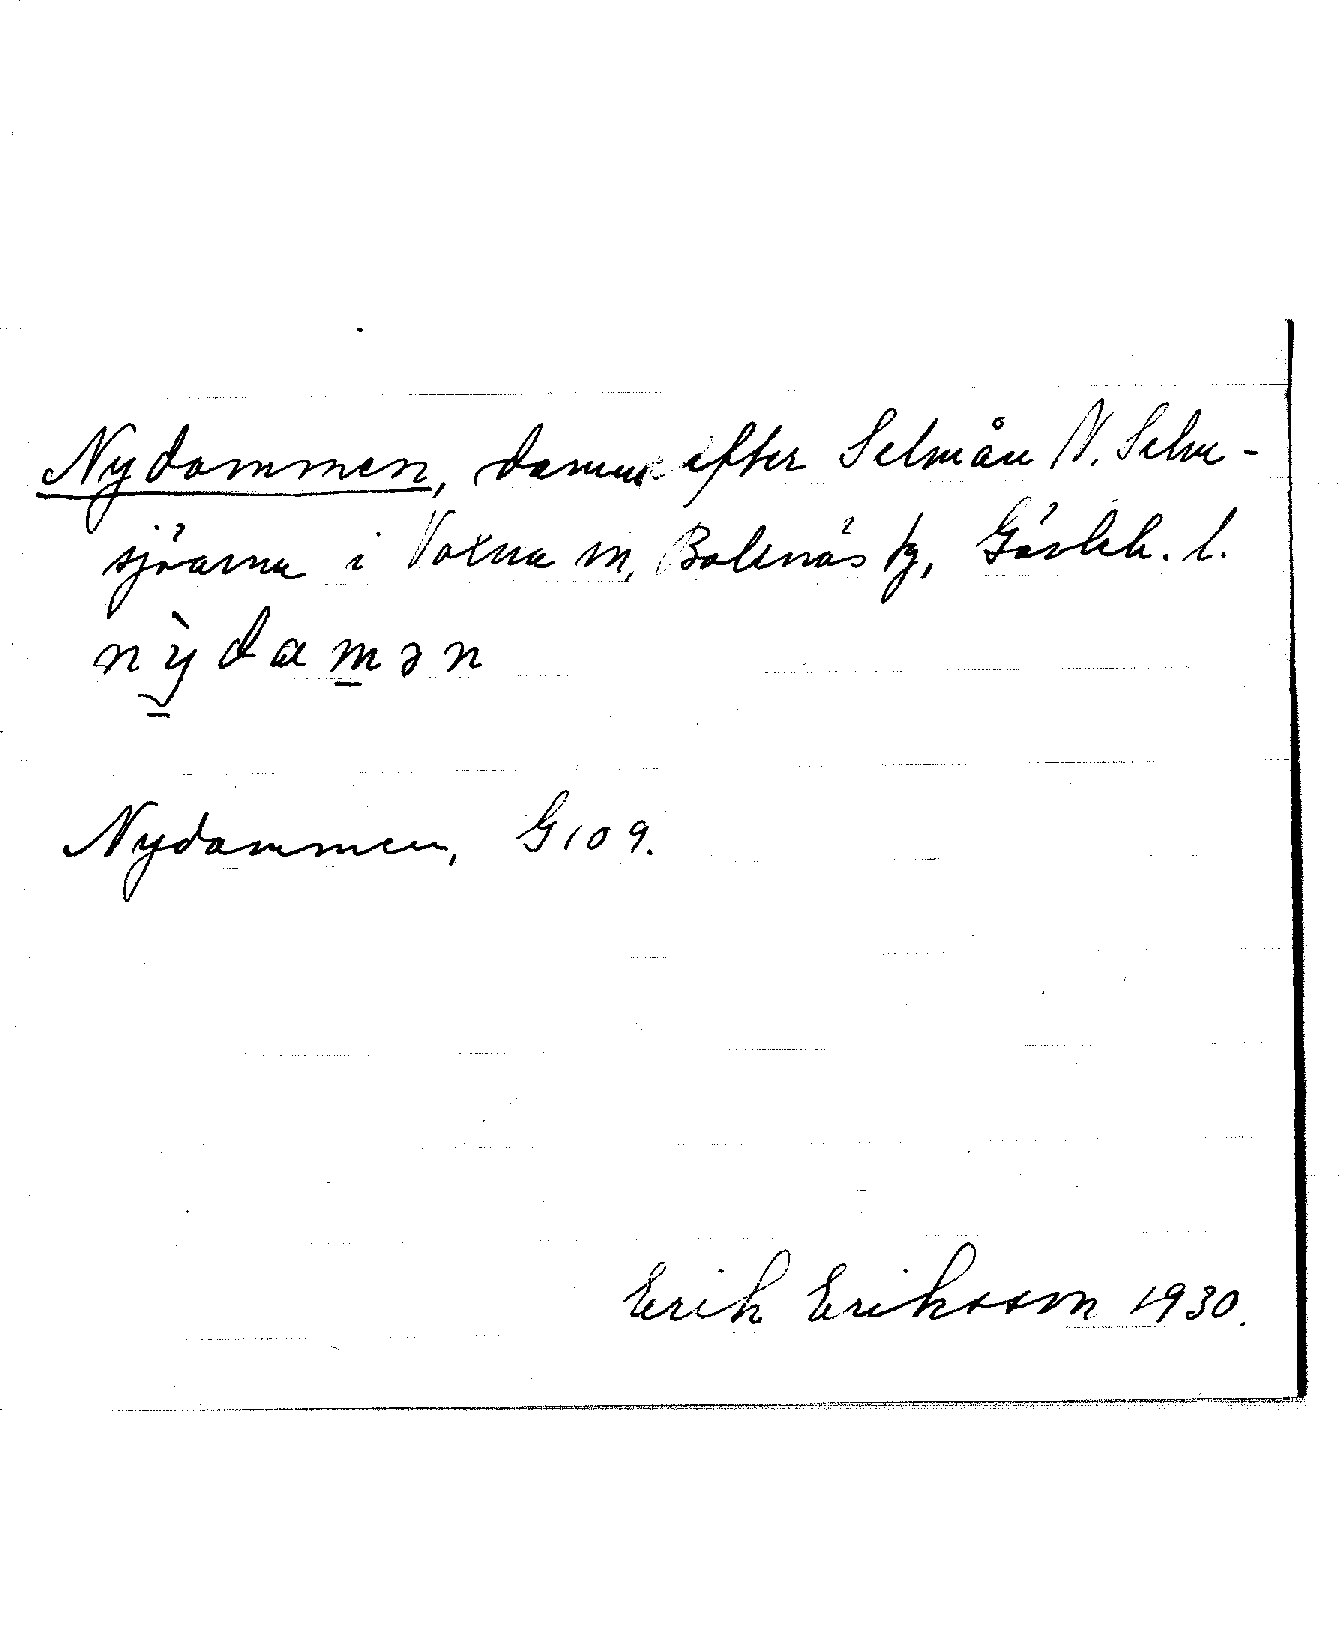 Nydammen, damm efter Selmån N. Selm-
sjöarna i Voxna sn, Bollnäs fg, Gävleb. l.
nỳdamən
Nydammen, G 109.
Erik Eriksson 1930.